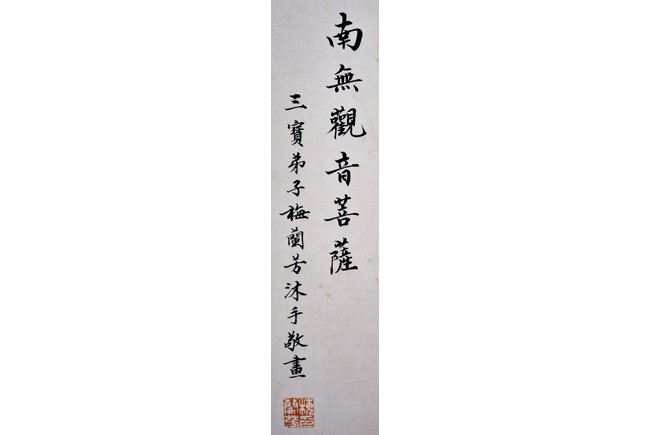 南無觀音菩薩
三寶弟子梅蘭芳沐手敬畫